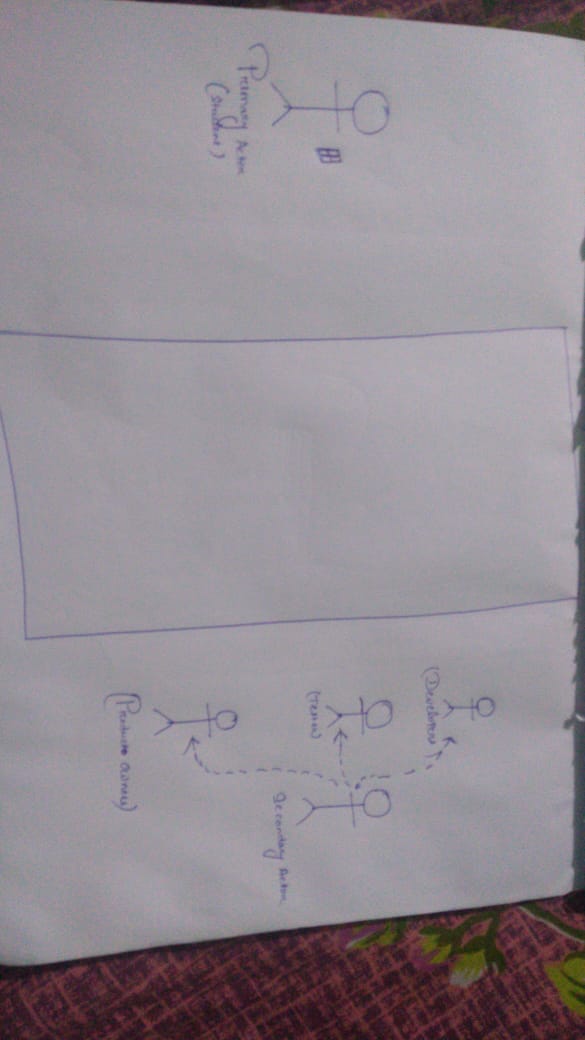 Primary Actor
(Student)
(Developer)
(Tester)
Secondary Actor
(Products owners)